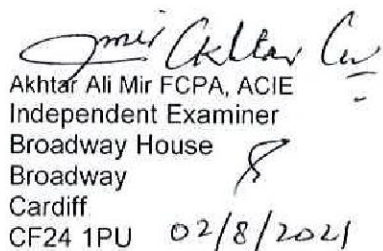 Akhtar Ali Mir FCPA, ACIE
Independent Examiner
Broadway House
Broadway
Cardiff
CF24 1PU 02/8/2021